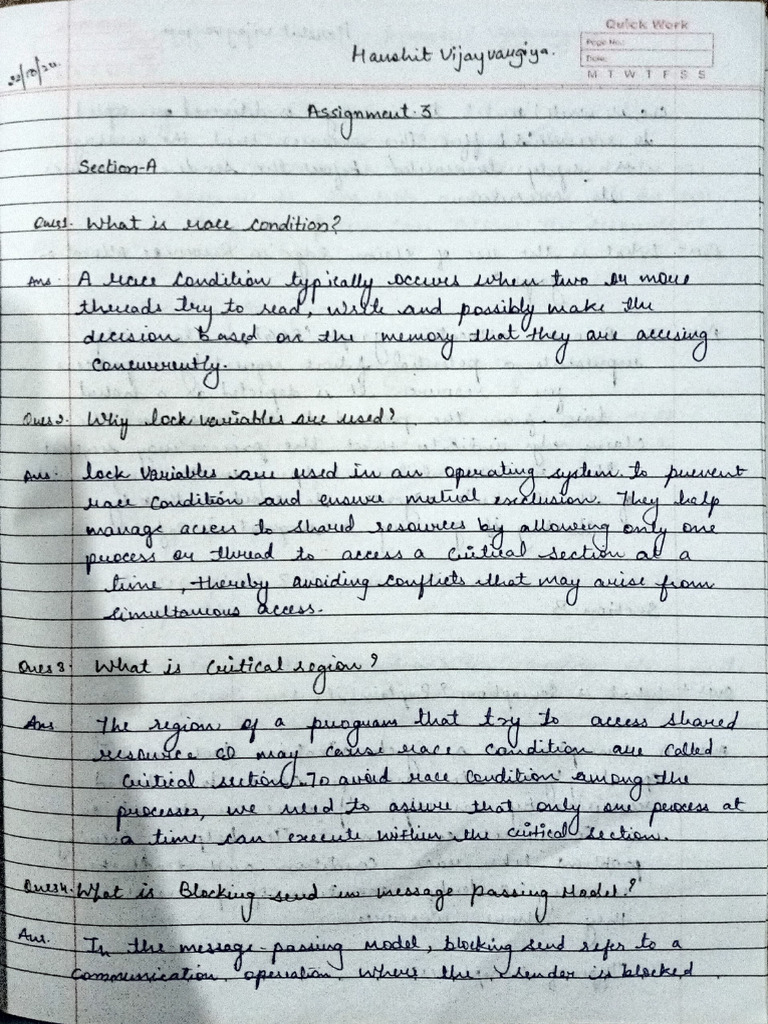 Quick Work
Page No.:
Date:
M T W T F S S
Harshit Vijayvargiya.
Assignment-3
Section-A
Ques1. What is race condition?
Ans. A race condition typically occurs when two or more
threads try to read, write and possibly make the
decision based on the memory that they are accesing
concurrently.
Ques2. Why lock variables are used?
Ans. lock variables are used in an operating system to prevent
race condition and ensure mutual exclusion. They help
manage access to shared resources by allowing only one
process or thread to access a critical section at a
time, thereby avoiding conflicts that may arise from
simultaneous access.
Ques3. What is critical region?
Ans The region of a program that try to access shared
resource may cause race condition are called
critical section. To avoid race condition among the
processes, we need to assure that only one process at
a time can execute within the critical section.
Ques4. What is Blocking send in message passing model?
Ans. In the message-passing model, blocking send refer to a
communication operation where the sender is blocked